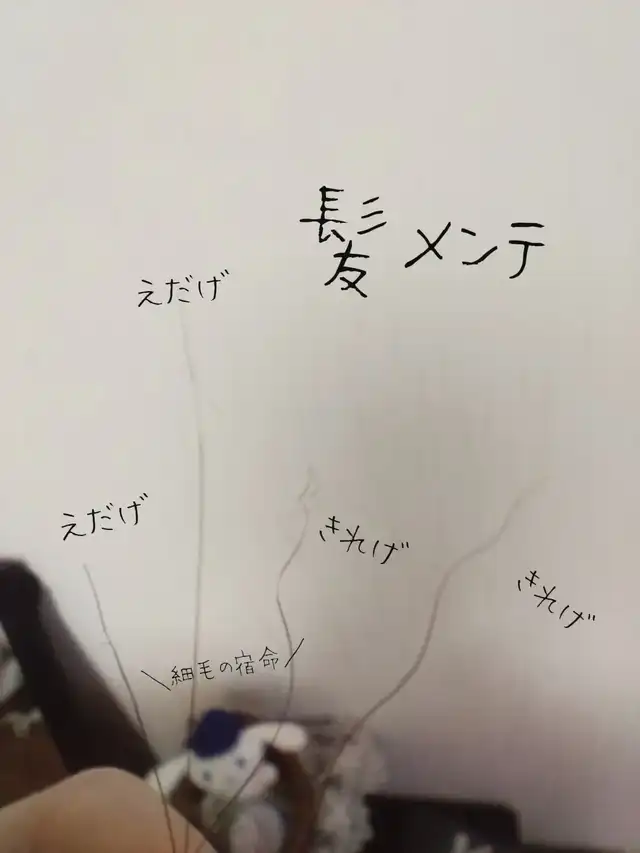 髪メンテ
えだげ
えだげ
きれげ
きれげ
\細毛の宿命/